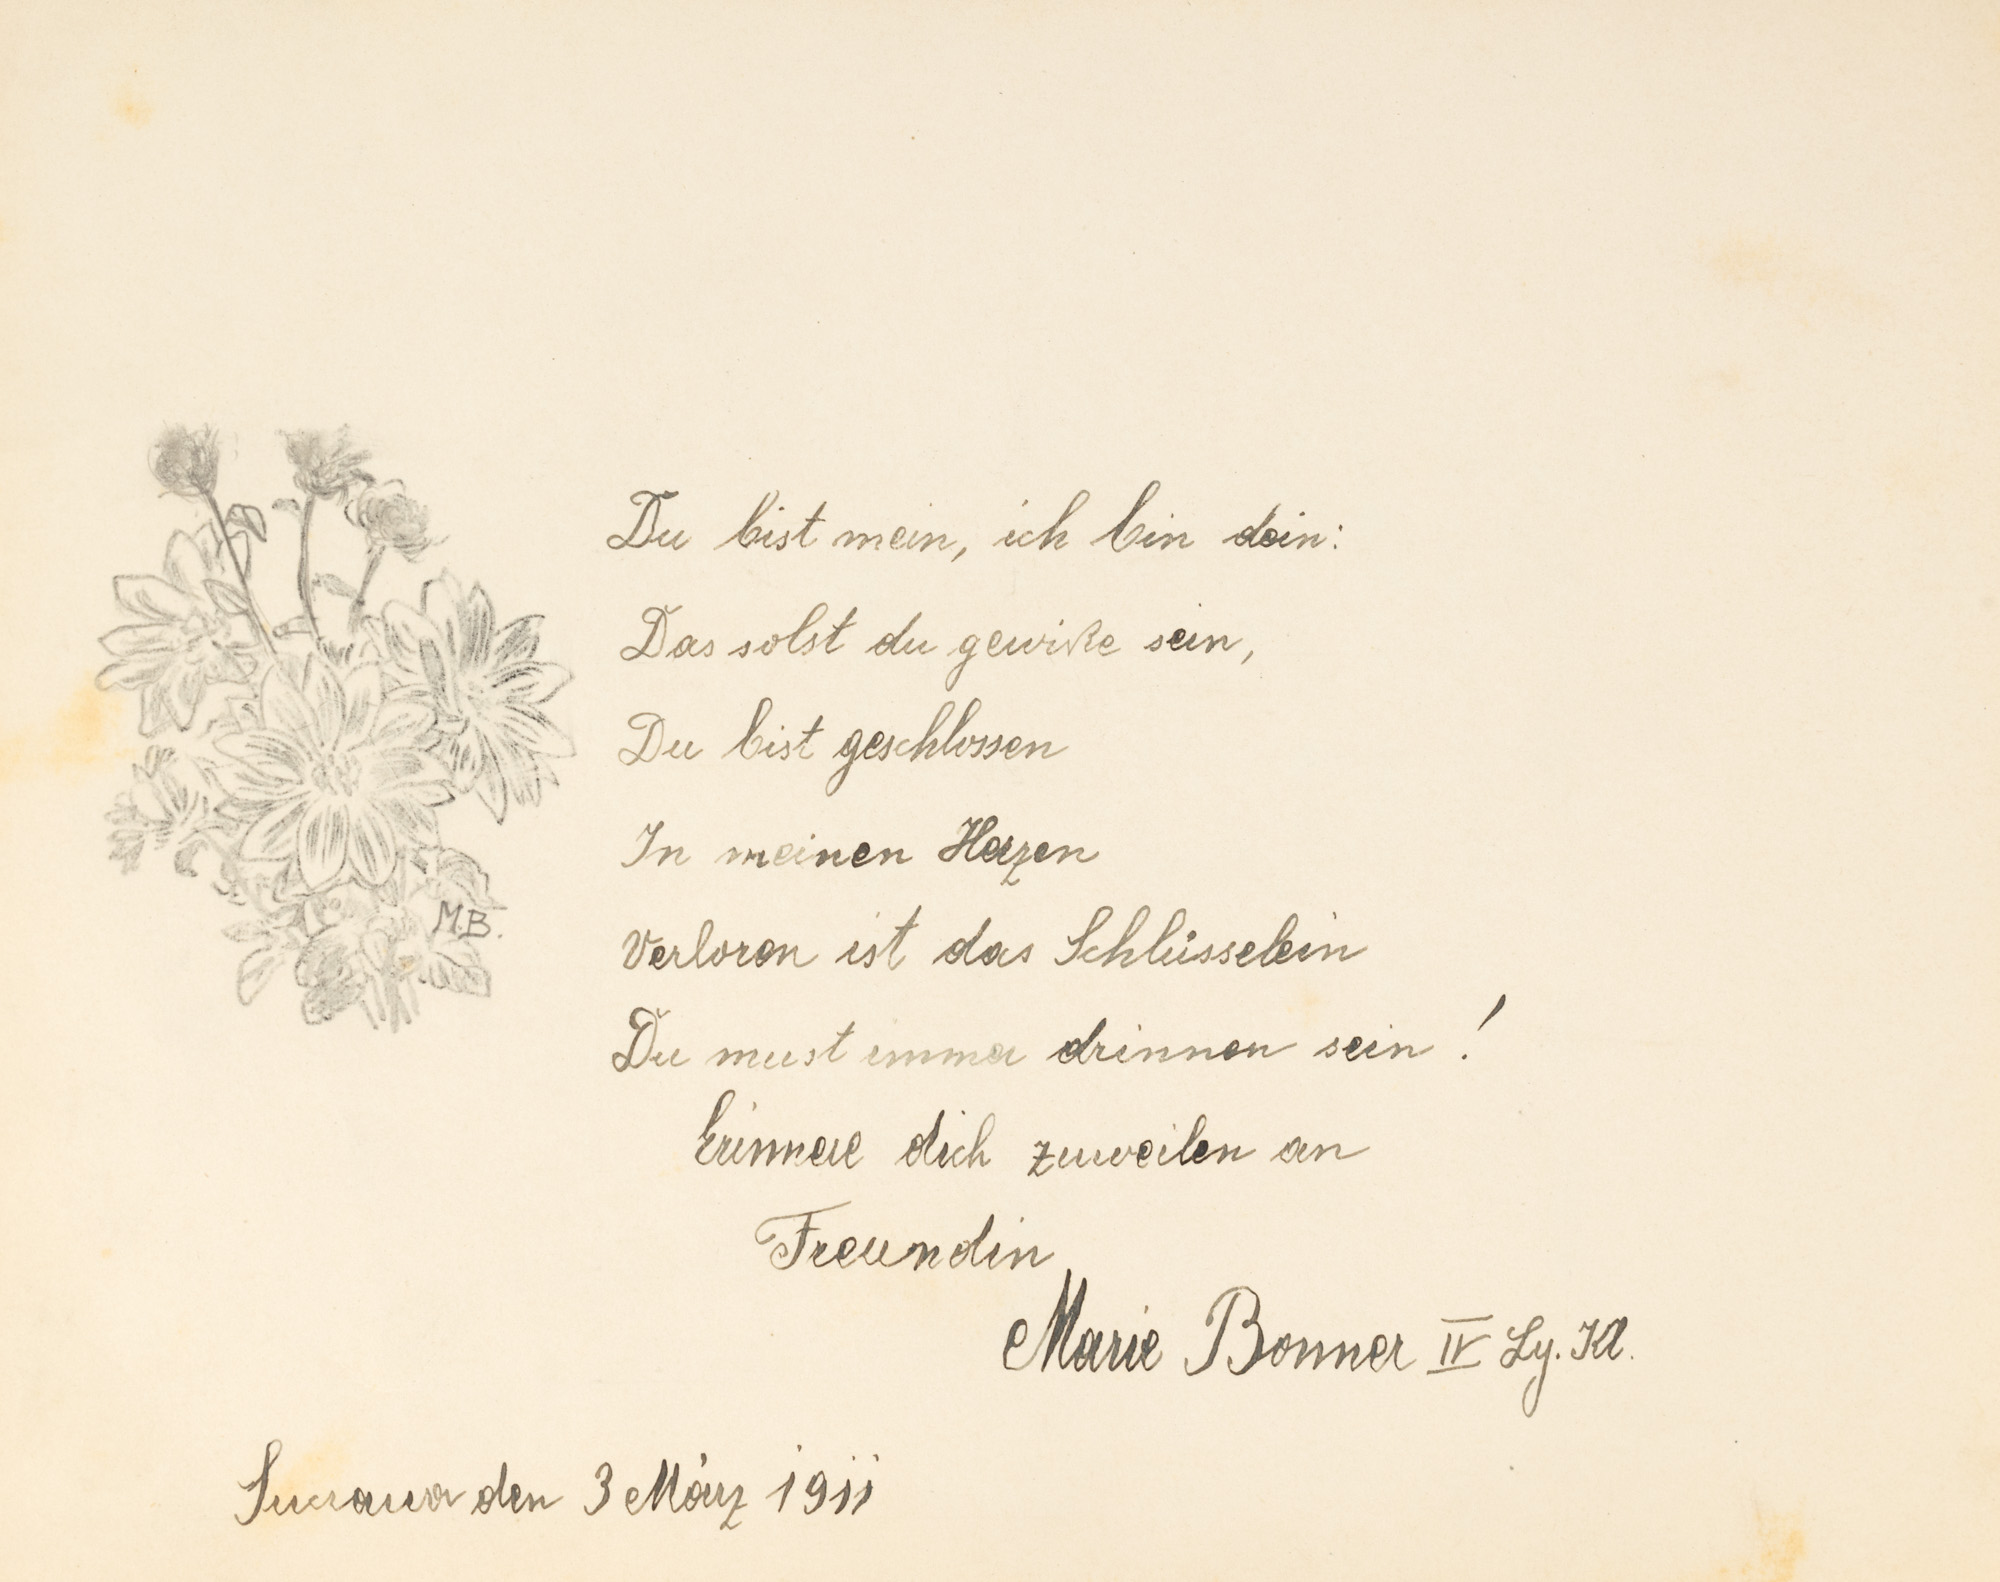 M.B.
Du bist mein, ich bin dein:
Das solst du gewiße sein,
Du bist geschlossen
In meinen Herzen
Verloren ist das Schlüsselein
Du must immer drinnen sein!
Erinnere dich zuweilen an
Freundin
Marie Bonner IV Ly. Kl.
Suczawa den 3 März 1911